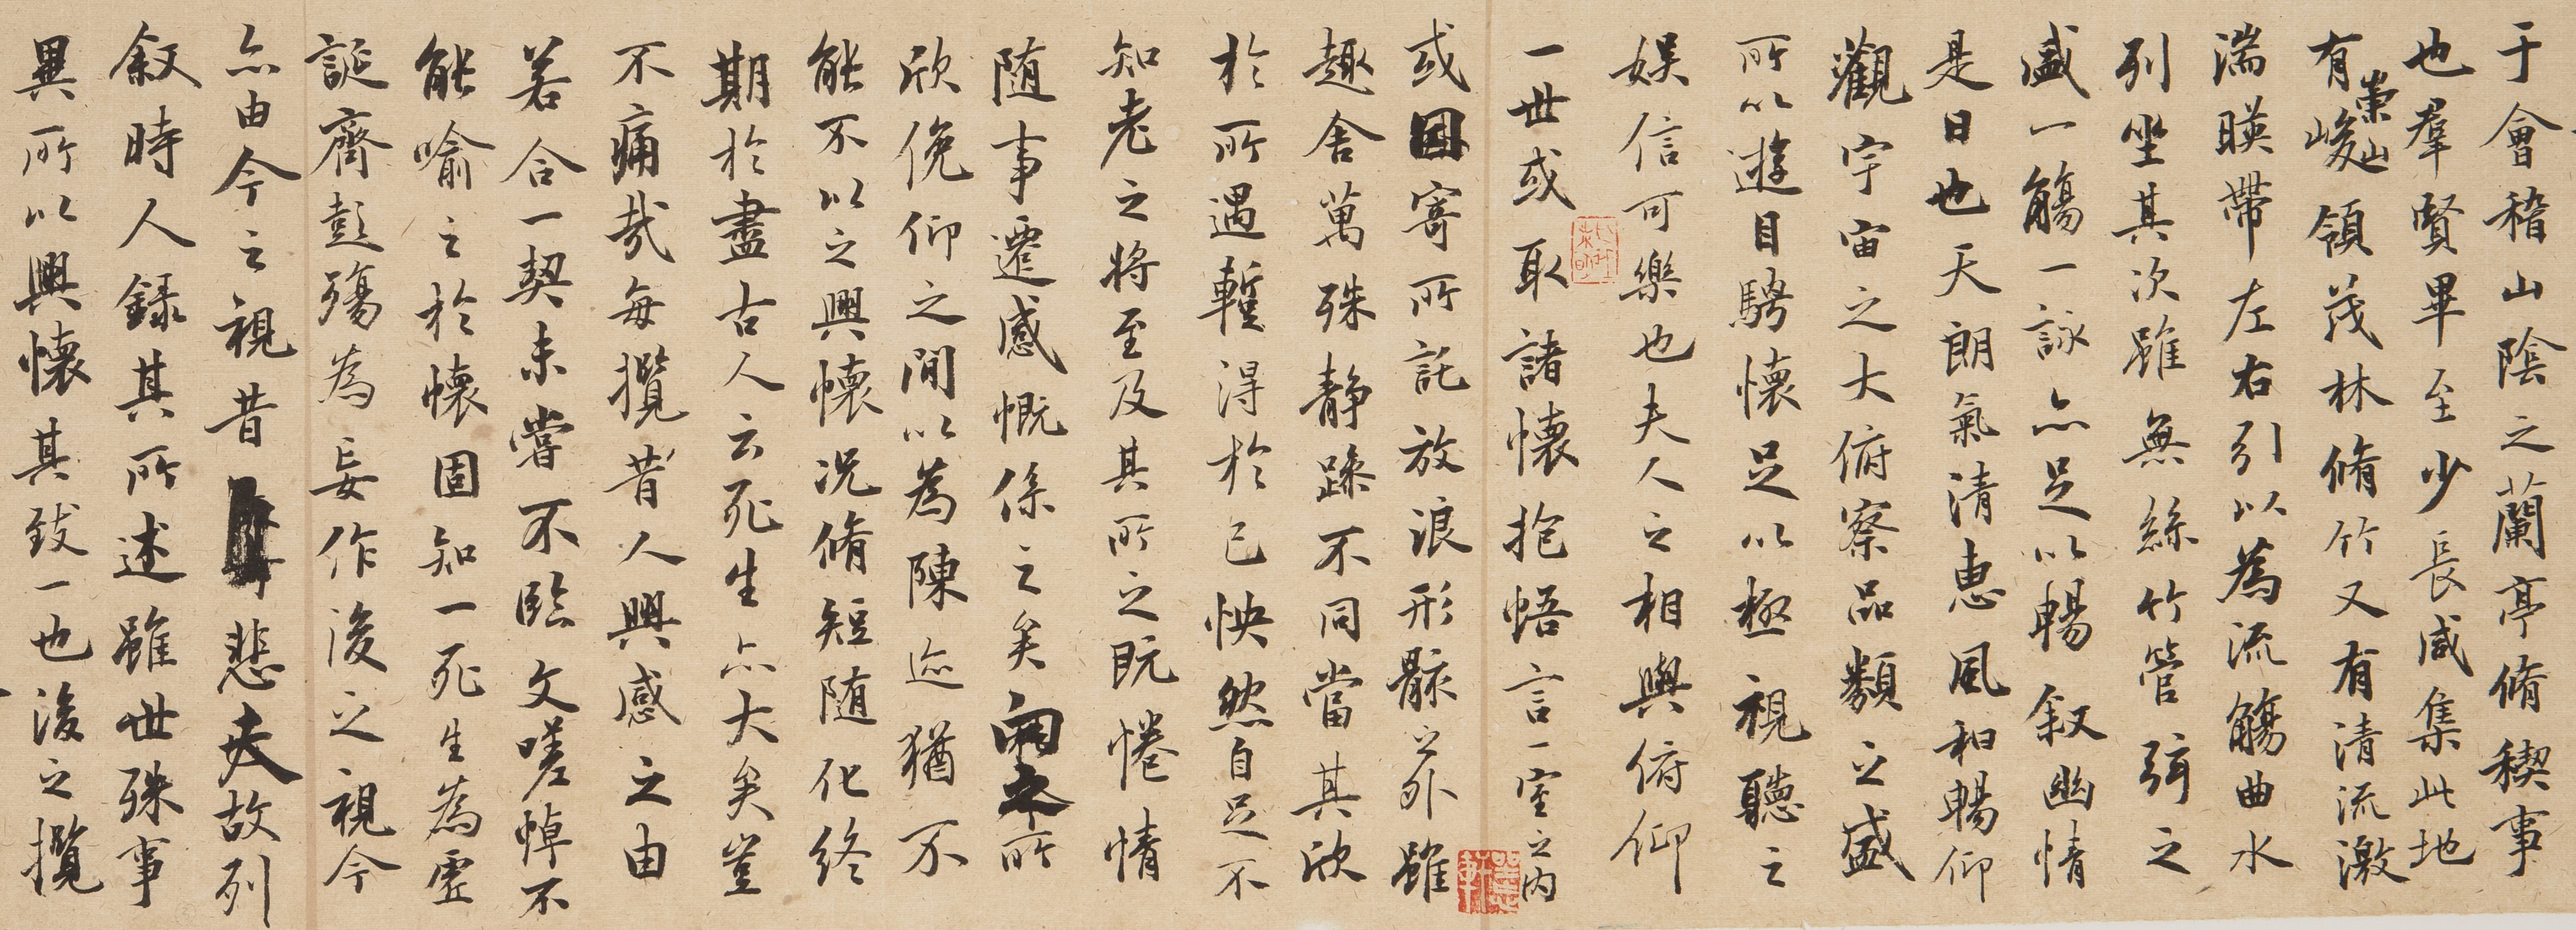 于會稽山陰之蘭亭脩稧事
也羣賢畢至少長咸集此地
有崇山峻領茂林脩竹又有清流激
湍暎帶左右引以為流觴曲水
列坐其次雖無絲竹管弦之
盛一觴一詠亦足以暢叙幽情
是日也天朗氣清惠風和暢仰
觀宇宙之大俯察品類之盛
所以遊目騁懷足以極視聽之
娛信可樂也夫人之相與俯仰
一世或取諸懷抱悟言一室之內
或因寄所託放浪形骸之外雖
趣舍萬殊静躁不同當其欣
於所遇蹔得於己怏然自足不
知老之將至及其所之既惓情
随事遷感慨係之矣向之所
欣俛仰之間以為陳迹猶不
能不以之興懷況脩短随化終
期於盡古人云死生亦大矣豈
不痛哉每攬昔人興感之由
若合一契未嘗不臨文嗟悼不
能喻之於懷固知一死生為虛
誕齊彭殤為妄作後之視今
亦由今之視昔悲夫故列
叙時人録其所述雖世殊事
異所以興懷其致一也後之攬